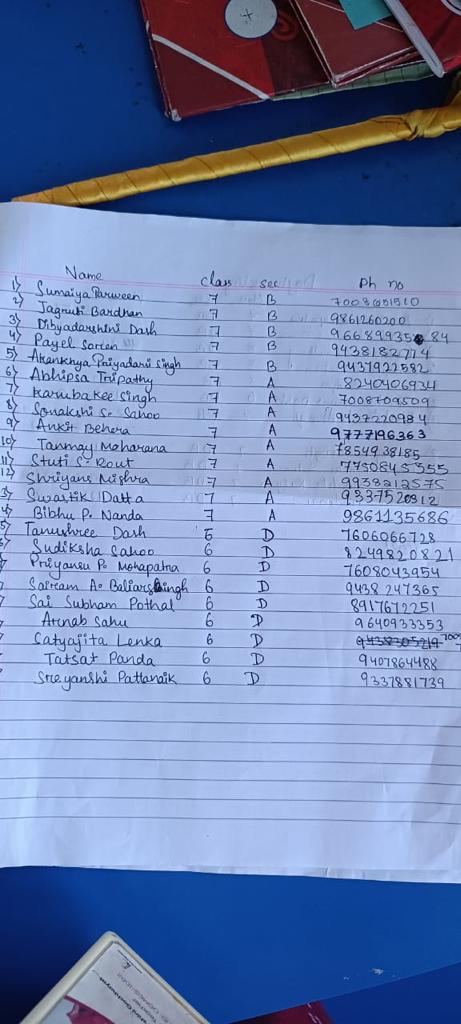 Name class sec Ph no
1) Sumaiya Parween 7 B 7008651510
2) Jagruti Bardhan 7 B 9861260200
3) Dibyadarshini Dash 7 B 966899358 84
4) Payel Soren 7 B 9438182714
5) Akankhya Priyadarsi Singh 7 B 9437922582
6) Abhipsa Tripathy 7 A 8240406934
7) Karubakee Singh 7 A 7008709509
8) Sonakshi S. Sahoo 7 A 9437220984
9) Ankit Behera 7 A 9777196363
10) Tanmay Moharana 7 A 7854938185
11) Stuti S. Rout 7 A 7750845355
12) Shriyans Mishra 7 A 9958212575
3) Swastik Datta 7 A 9337520812
4) Bibhu P. Nanda 7 A 9861135686
5) Tanushree Dash 6 D 7606066728
Sudiksha Sahoo 6 D 8249820821
Priyansu P. Mohapatra 6 D 7608043954
Sairam A. Baliarsingh 6 D 9438 247365
Sai Subham Pothal 6 D 8917672251
Arnab Sahu 6 D 9640933353
Satyajita Lenka 6 D 9438305219
Tatsat Panda 6 D 9407864488
Sreyanshi Pattanaik 6 D 9337881739